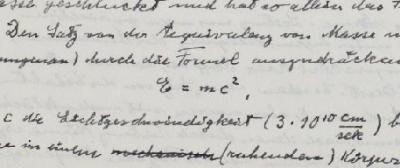 geschluckt und hat so allein das
Den Satz von der Aequivalenz von Masse
durch die Formel auszudrücken
E = mc²,
c die Lichtgeschwindigkeit (3 · 10¹⁰ cm/sek)
in einem mechanisch (ruhenden) Körper